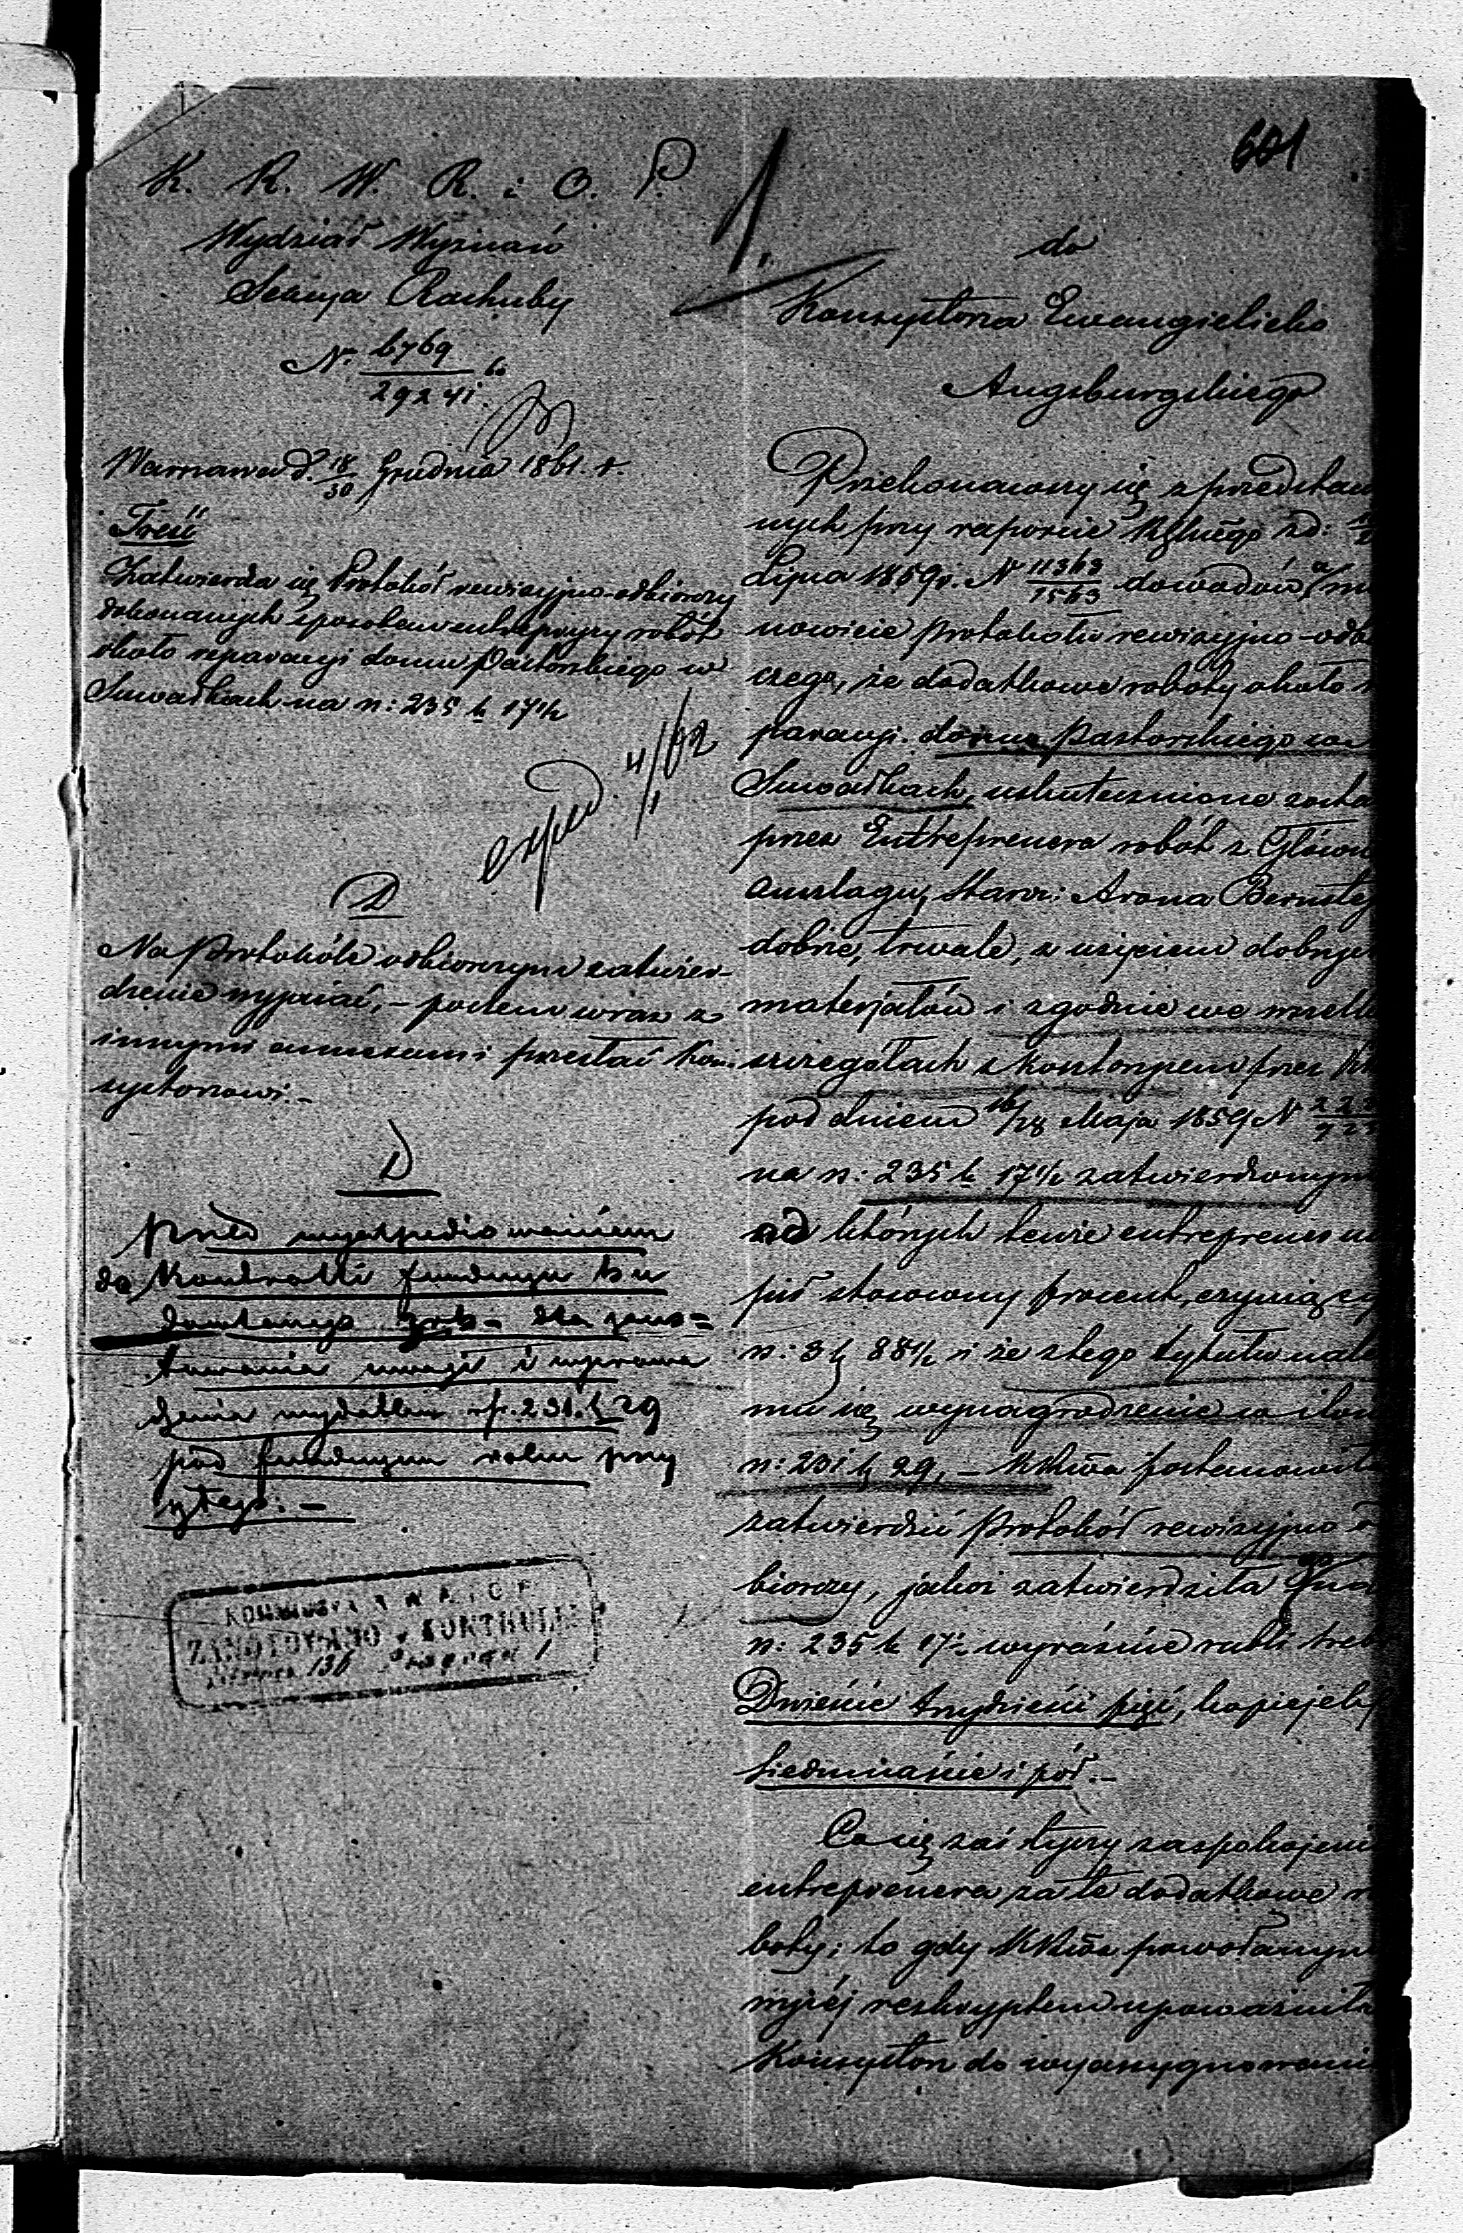 601
K. R. W. R. i O. P.
Wydział Wyznań
Sekcya Rachuby
N. 6769
29241
Warszawa d. 18/30 Grudnia 1861. r.
Treść
Zatwierdza się Protokół rewizyjno-odbiorczy
dokonanych sposobem entrepryzy robót
około reparacyi domu Pastorskiego w
Suwałkach na rs: 235 k 17½
exped. 4/1/62
D
Na Protokóle odbiorczym zatwier-
dzenie wypisać, – potem wraz z
innymi annexami przesłać Kon-
systorzowi. –
D
przed wyexpediowaniem
do Kontrolli funduszu bu
dowlanego dla zano=
towania uwagi i wyprowa
dzenia wydatku rs. 231. k 29
pod funduszem roku przy
szłego. –
ZANOTOWANO w KONTROLLI
136 1
do
Konsystorza Ewangielicko
Augsburgskiego
Przekonawszy się z przedstaw
nych przy raporcie z d:
Lipca 1859 r. N 11363/1563 dowodów, a mi
nowicie protokołu rewizyjno-odbi
czego, że dodatkowe roboty około r
paracyi domu Pastorskiego w
Suwałkach, uskutecznione zosta
przez Entreprenera robót z Główn
Anszlagu, Staroz: Arona Bernstej
dobrze, trwale, z użyciem dobrych
materjałów i zgodnie we wszelk
szczegółach z kosztorysem przez
pod dniem 16/28 Maja 1859 N
na rs: 235 k 17½ zatwierdzonym
od których tenże entreprener u
pił stosowny procent, czyniący
rs: 3 k 88½ i że z tego tytułu nale
mu się wynagrodzenie w iloś
rs: 231 k 29, – postanowiła
zatwierdzić Protokół rewizyjno o
biorczy, jakoż zatwierdziła go na
rs: 235 k 17½ wyraźnie rubli sreb
Dwieście trzydzieści pięć, kopiejek
siedmnaście i pół. –
Co się zaś tyczy zaspokojeni
entreprenera za te dodatkowe r
boty; to gdy powołanym
wyżéj reskryptem upoważniła
Konsystorz do wyassygnowani